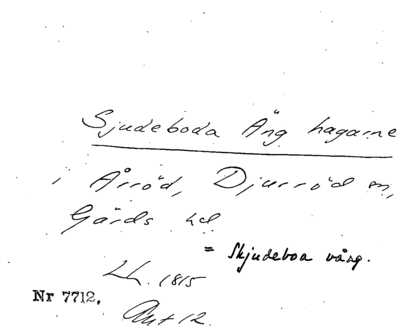 Sjudeboda Äng hagarne
i Årröd, Djurröd sn,
Gärds hd
= Skjudeboa vång.
Lh. 1815
Nr 7712.
Akt 12.